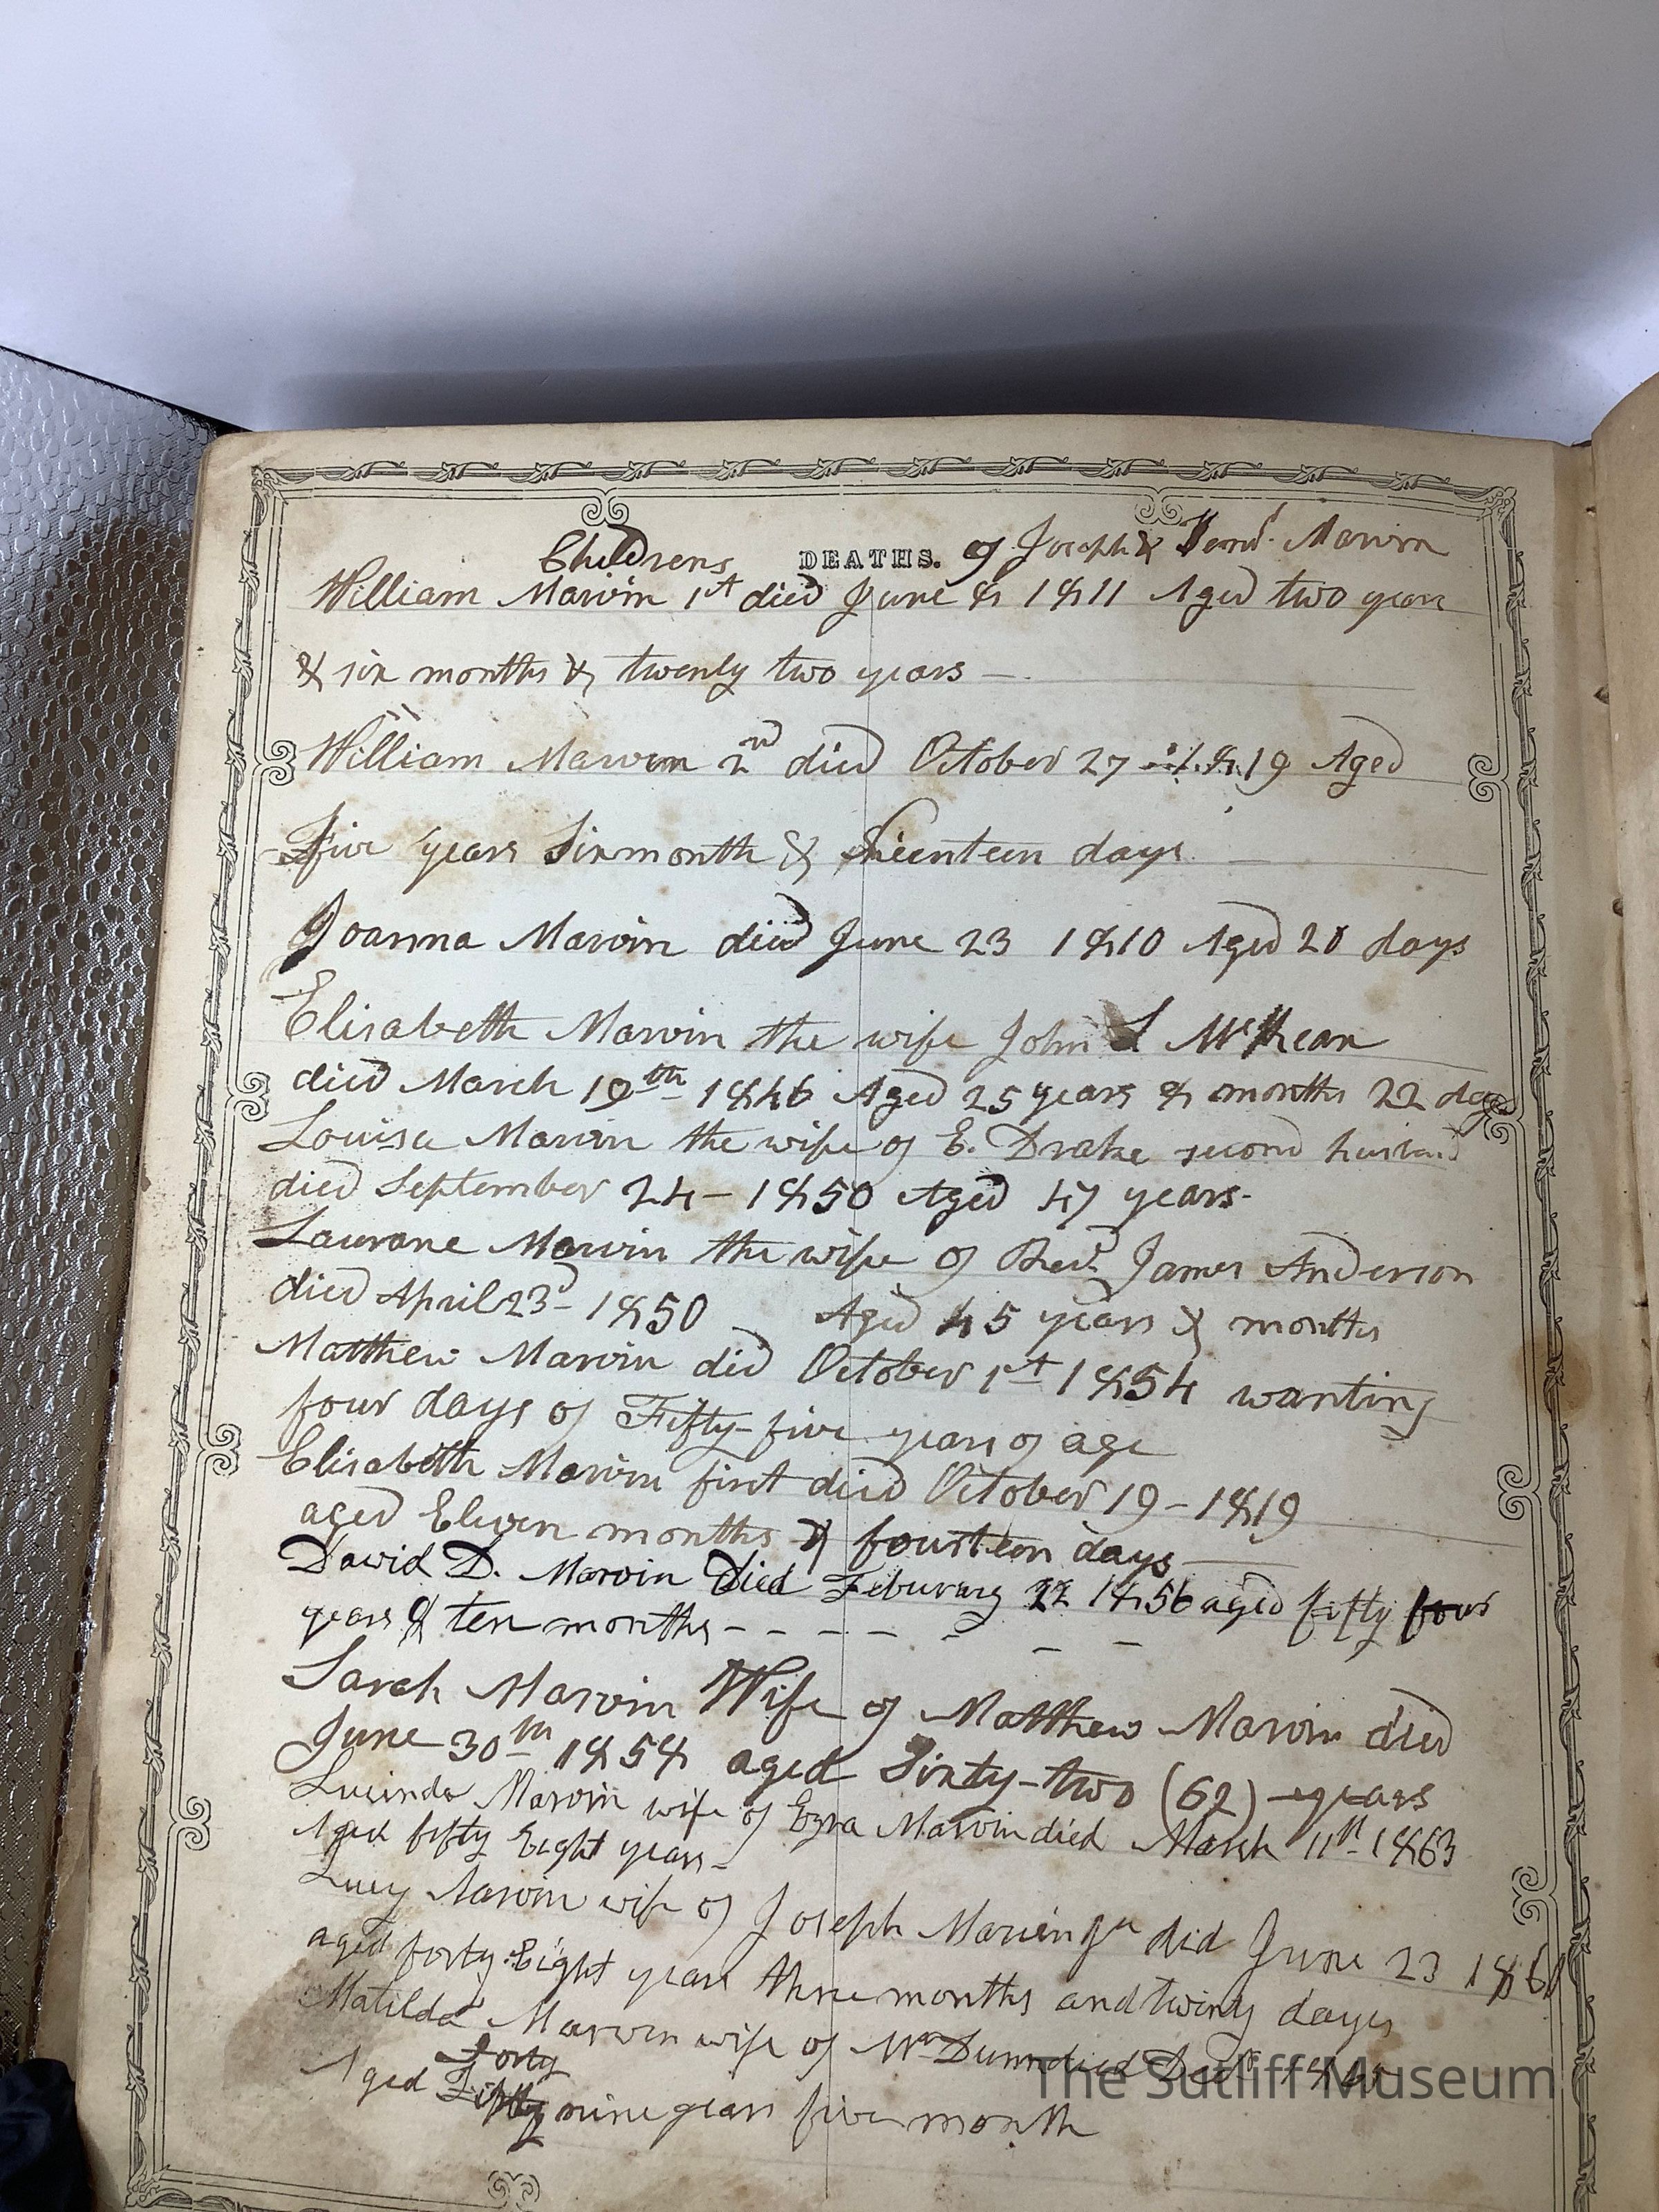 Childrens DEATHS. of Joseph & Marvin
William Marvin 1st died June 8 1811 Aged two years
& six months & twenty two years —
William Marvin 2nd died October 27 1819 Aged
Five years Six month & days
Joanna Marvin died June 23 1810 Aged 20 days
Elisabeth Marvin the wife John L McKean
died March 19th 1846 Aged 25 years 8 months 22 days
Louisa Marvin the wife of E. Drake second husband
died September 24 – 1850 Aged 47 years
Laurane Marvin the wife of Revd James Anderson
died April 23d – 1850 Aged 45 years & months
Matthew Marvin died October 1st 1854 wanting
four days of Fifty-five years of age
Elisabeth Marvin first died October 19 – 1819
aged Eleven months & fourteen days
David D. Marvin Died Feburary 22 1856 aged fifty four
years & ten months – – – – – – –
Sarah Marvin Wife of Matthew Marvin died
June 30th 1858 aged Sixty-two (62) years
Lucinda Marvin wife of Ezra Marvin died March 11th 1863
Aged fifty Eight years –
Lucy Marvin wife of Joseph Marvin Jr did June 23 1861
aged forty Eight years three months and twing days
Matilda Marvin wife of Wm Dunn died Dec
Forty
Aged Fifty nine years five month
The Sutliff Museum